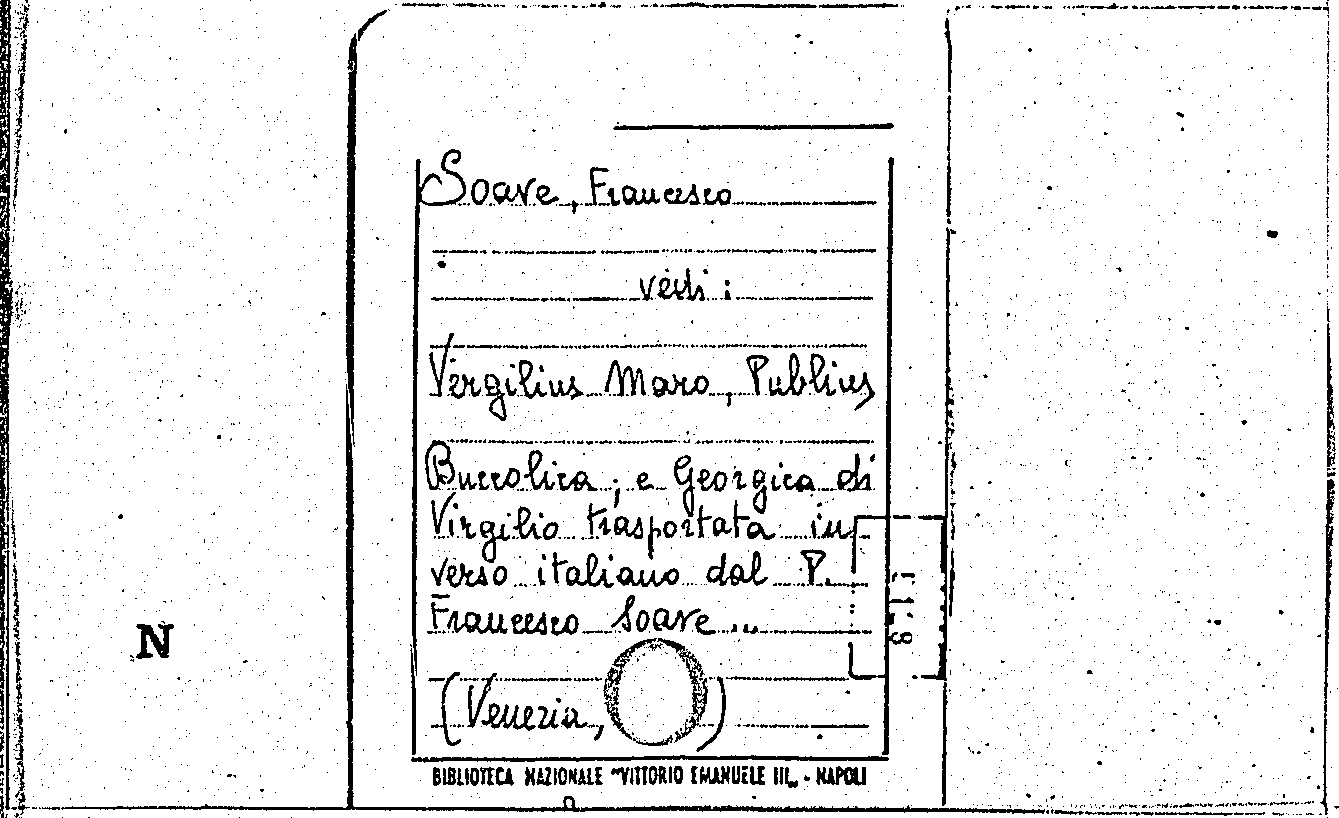 Soave, Francesco
vedi:
Vergilius Maro, Publius
Buccolica, e Georgica di
Virgilio trasportata in
verso italiano dal P.
Francesco Soave...
N
(Venezia, )
BIBLIOTECA NAZIONALE "VITTORIO EMANUELE III„ - NAPOLI